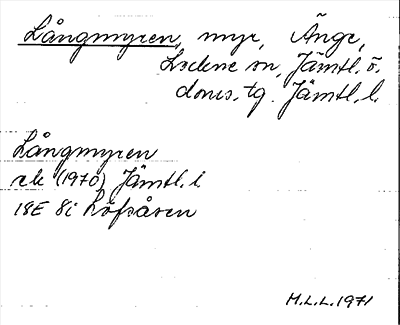 Långmyren, myr, Änge,
sn, Jämtl. ö.
doms. tg. Jämtl. l.
Långmyren
ek (1970) Jämtl. l
18E 8i Löfsåsen
M.L.L. 1971